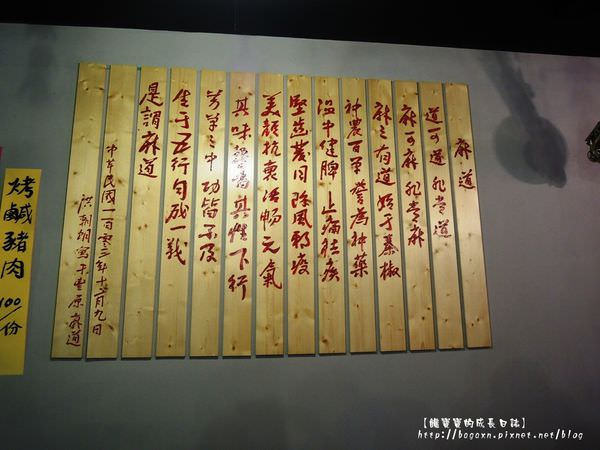 麻道
道可道 非常道
麻可麻 非常麻
麻之有道 始于秦椒
神農百草 譽為神藥
溫中健脾 止痛祛痰
堅齒發目 除風邪瘦
美顏抗衰活暢元氣
其味馨香其性下行
芳草之中 功皆不及
生于五行自成一義
是謂麻道
中華民國一百零三年十二月九日
洪朝樹寫于豐原麻道
烤鹹豬肉
100/份
【熊寶寶的成長日誌】
http://bogoxn.pixnet.net/blog